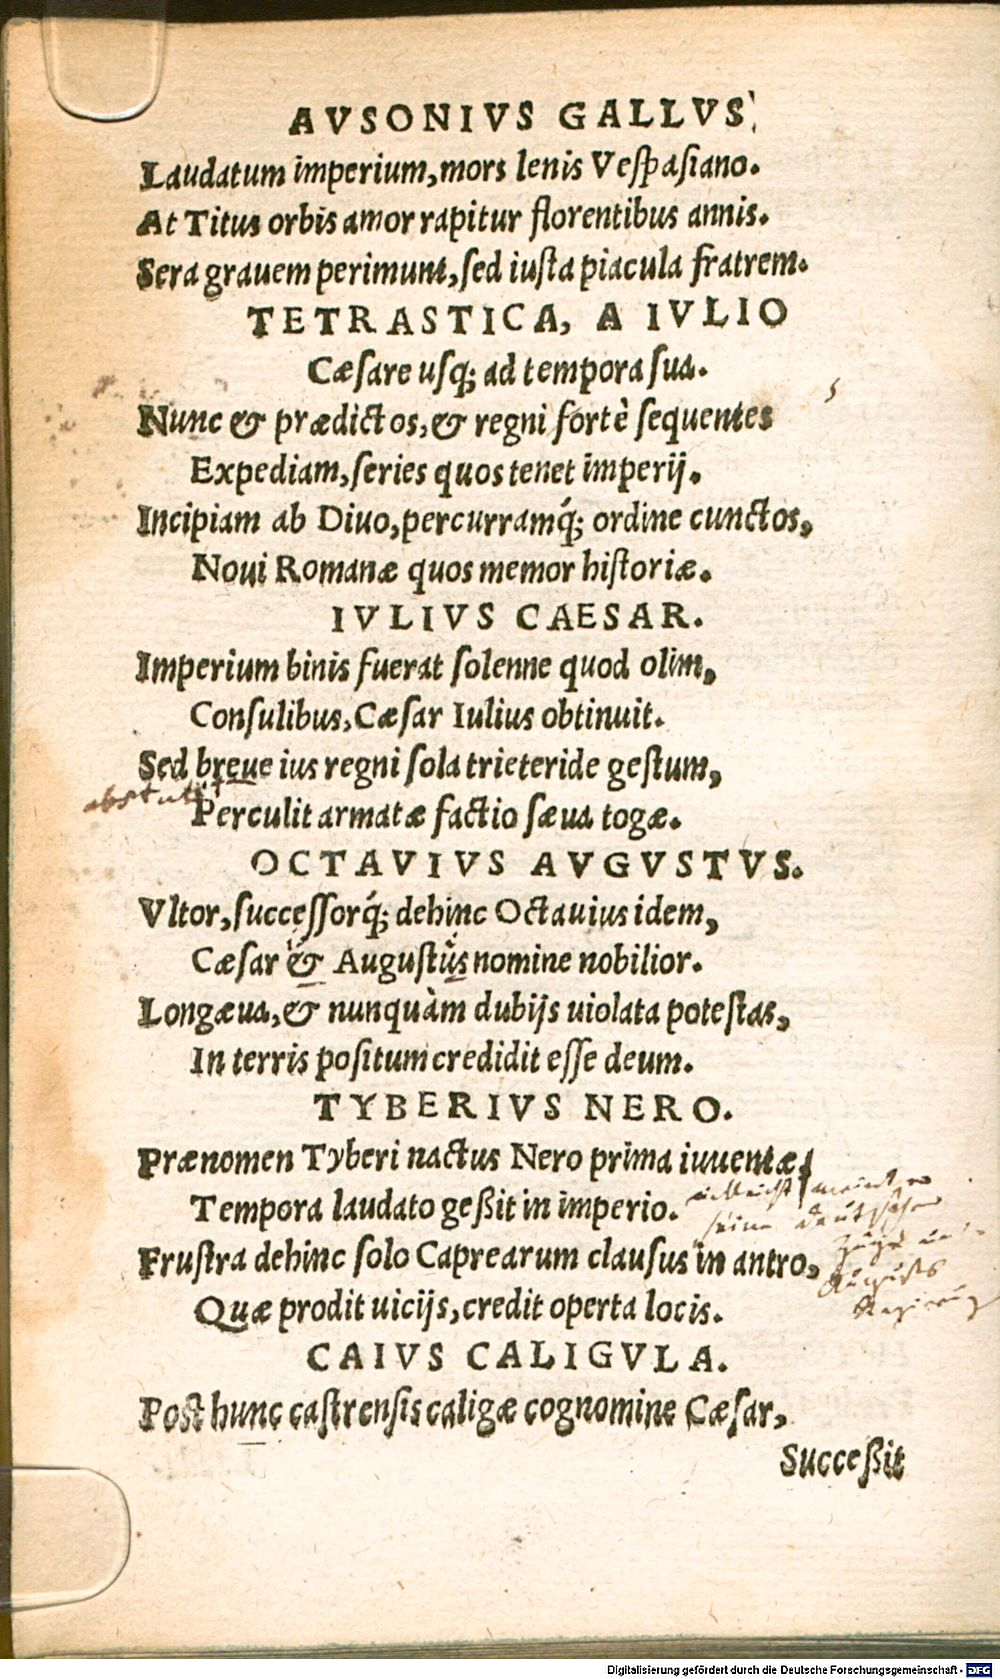 AVSONIVS GALLVS
Laudatum imperium, mors lenis Veſpaſiano.
At Titus orbis amor rapitur florentibus annis.
Sera grauem perimunt, ſed iuſta piacula fratrem.
TETRASTICA, A IVLIO
Cæſare uſq; ad tempora ſua.
Nunc & prædictos, & regni fortè ſequentes
Expediam, ſeries quos tenet imperij.
Incipiam ab Diuo, percurramq́; ordine cunctos,
Noui Romanæ quos memor hiſtoriæ.
IVLIVS CAESAR.
Imperium binis fuerat ſolenne quod olim,
Conſulibus, Cæſar Iulius obtinuit.
Sed breue ius regni ſola trieteride geſtum,
abstulit
Perculit armatæ factio ſæua togæ.
OCTAVIVS AVGVSTVS.
Vltor, ſucceſſorq́; dehinc Octauius idem,
Cæſar & Auguſtus nomine nobilior.
Longæua, & nunquàm dubijs uiolata poteſtas,
In terris poſitum credidit eſſe deum.
TYBERIVS NERO.
Prænomen Tyberi nactus Nero prima iuuentæ
Tempora laudato geßit in imperio.
vielleicht meint er
seine deutschen
Züge
Fruſtra dehinc ſolo Caprearum clauſus in antro,
Augusts
Regierung
Quæ prodit uicijs, credit operta locis.
CAIVS CALIGVLA.
Poſt hunc caſtrenſis caligæ cognomine Cæſar,
Succeßit
Digitalisierung gefördert durch die Deutsche Forschungsgemeinschaft - DFG